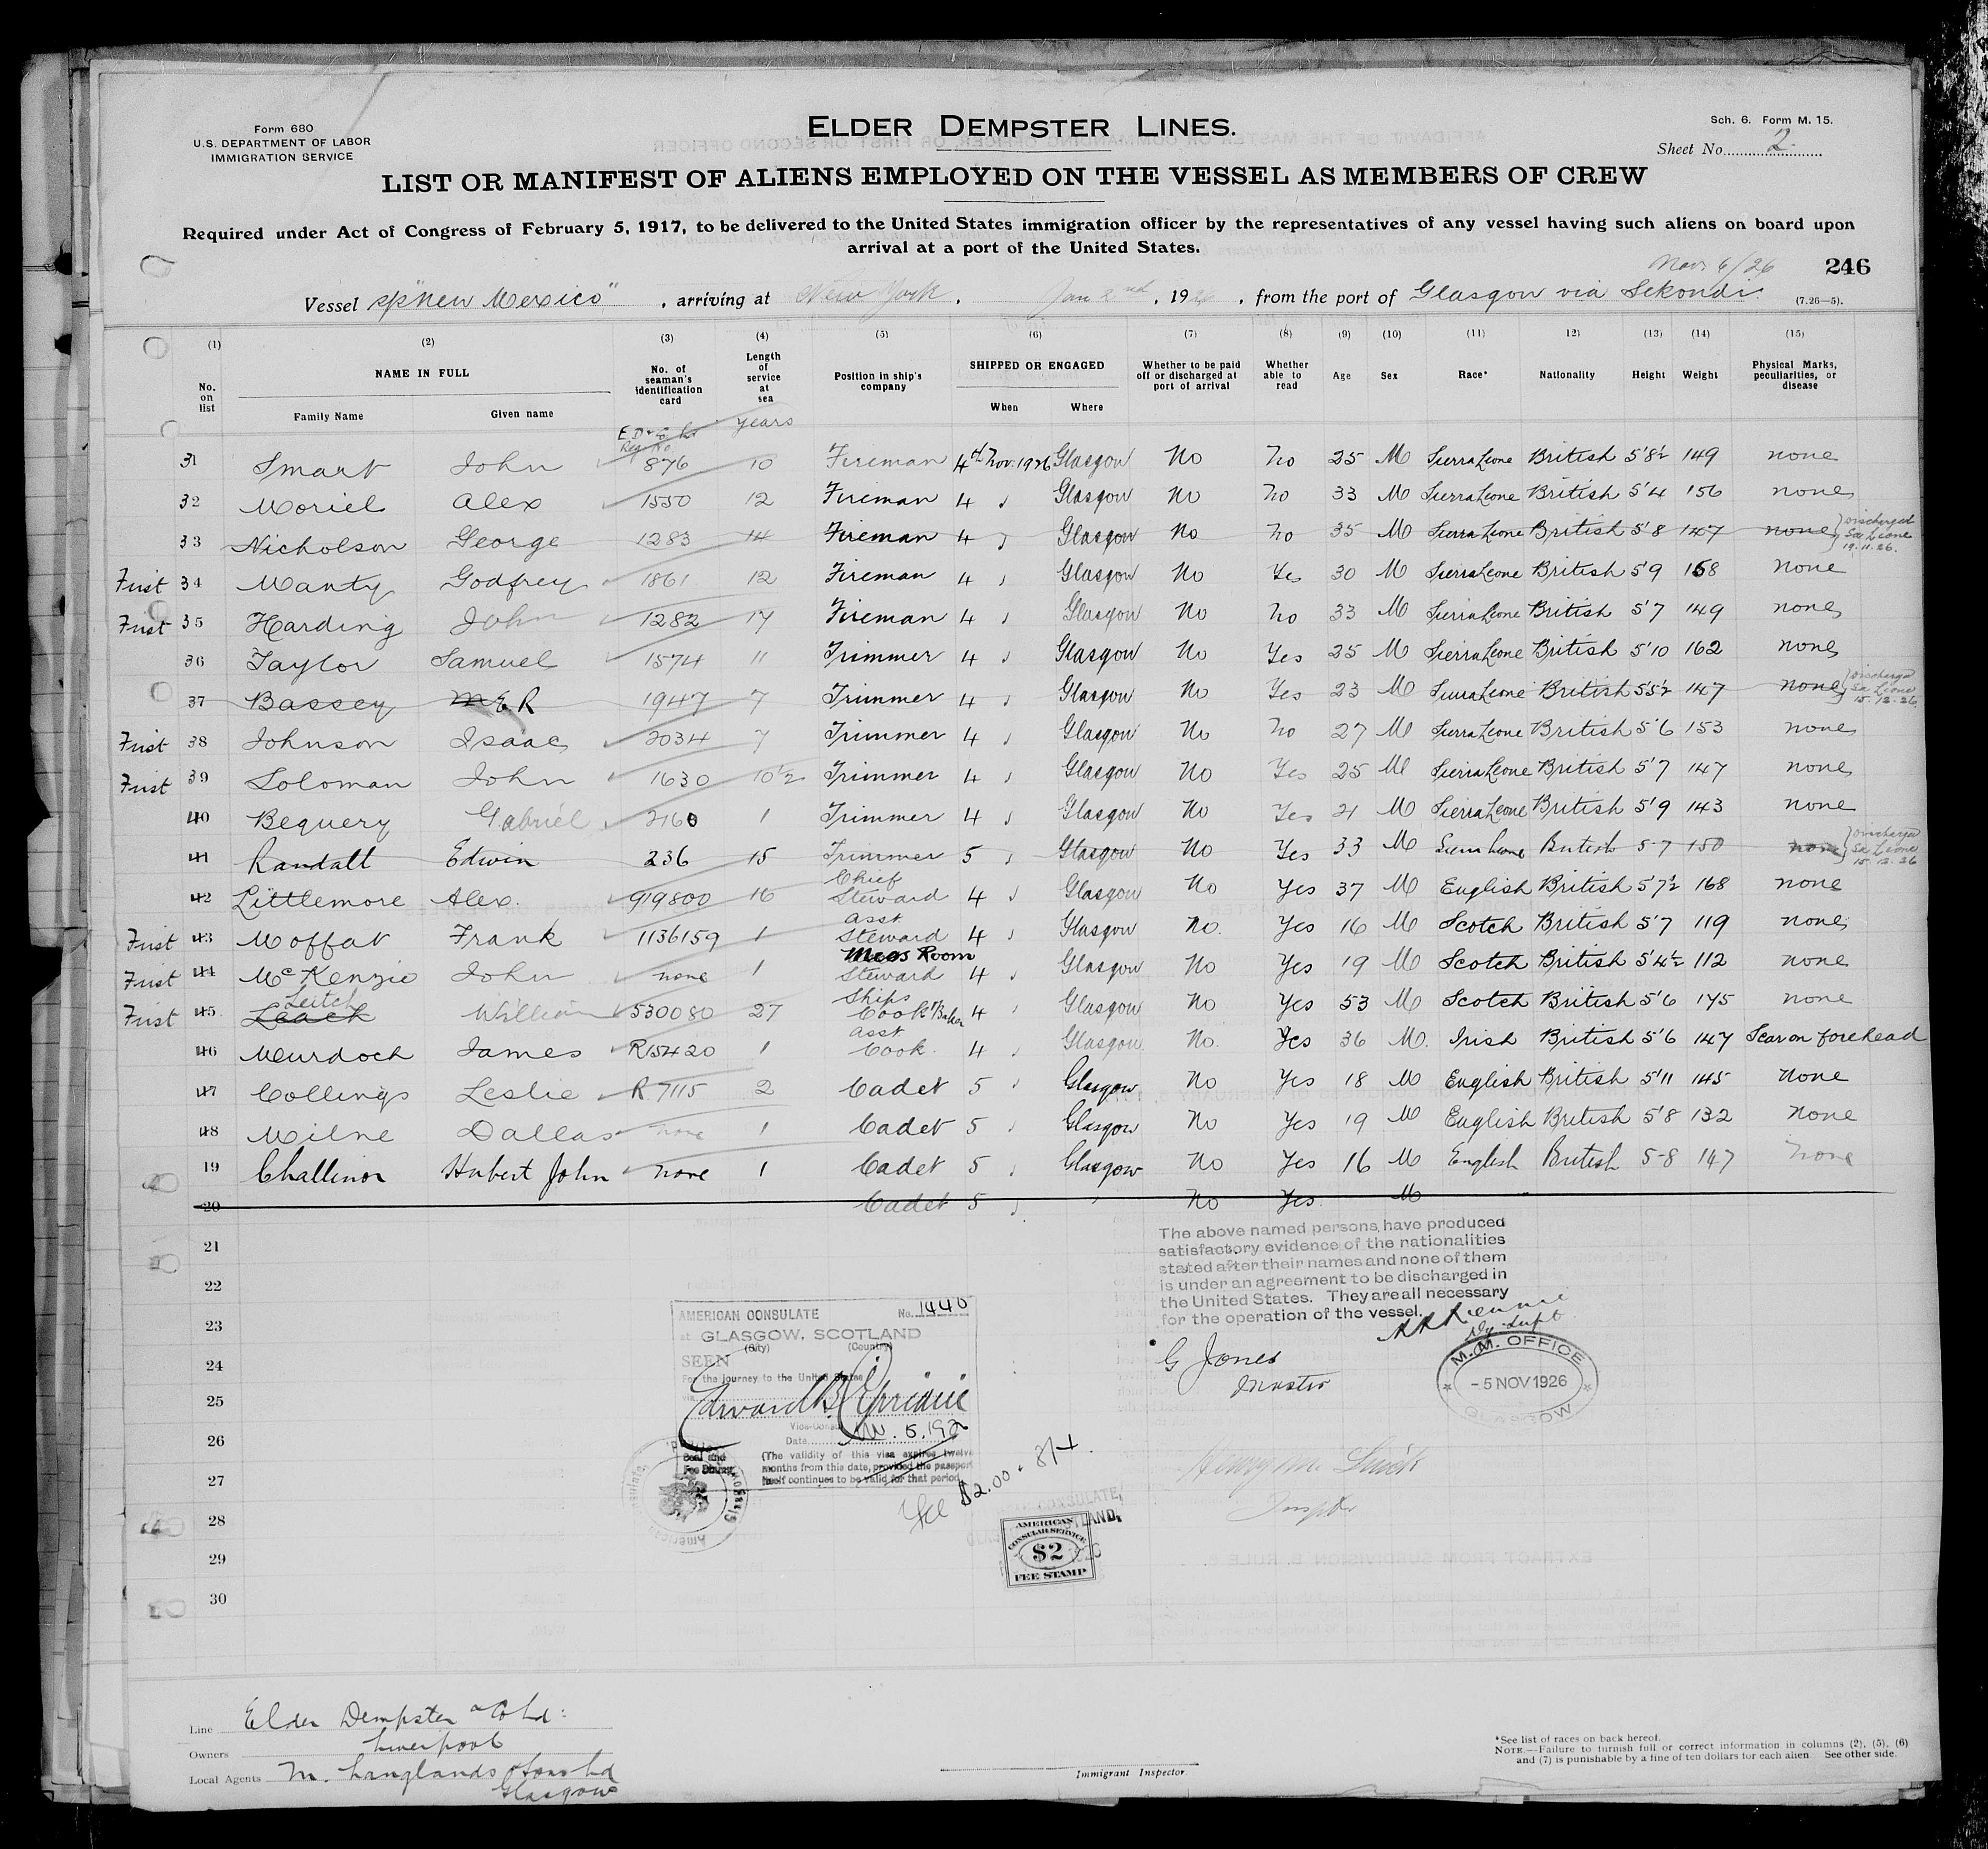 Form 680
U.S. DEPARTMENT OF LABOR
IMMIGRATION SERVICE
ELDER DEMPSTER LINES.
Sch. 6. Form M. 15.
Sheet No. 2.
LIST OR MANIFEST OF ALIENS EMPLOYED ON THE VESSEL AS MEMBERS OF CREW
Required under Act of Congress of February 5, 1917, to be delivered to the United States immigration officer by the representatives of any vessel having such aliens on board upon
arrival at a port of the United States.
Nov. 6/26 246
Vessel "New Mexico", arriving at New York, Jan 2nd, 19, from the port of Glasgow via Sekondi (7.26—5).
(1) (2) (3) (4) (5) (6) (7) (8) (9) (10) (11) 12) (13) (14) (15)
No. on list NAME IN FULL Family Name Given name No. of seaman's identification card Length of service at sea Position in ship's company SHIPPED OR ENGAGED When Where Whether to be paid off or discharged at port of arrival Whether able to read Age Sex Race* Nationality Height Weight Physical Marks, peculiarities, or disease
Reg No years
31 Smart John 876 10 Fireman 4th Nov. 1926 Glasgow No No 25 M Sierra Leone British 5'8½ 149 none
32 Moriel Alex 1550 12 Fireman 4 Glasgow No No 33 M Sierra Leone British 5'4 156 none
33 Nicholson George 1283 14 Fireman 4 Glasgow No No 35 M Sierra Leone British 5'8 147 none Discharged Sa Leone 19.11.26.
First 34 Manty Godfrey 1861 12 Fireman 4 Glasgow No Yes 30 M Sierra Leone British 5'9 158 none
First 35 Harding John 1282 17 Fireman 4 Glasgow No No 33 M Sierra Leone British 5'7 149 none
36 Taylor Samuel 1574 11 Trimmer 4 Glasgow No Yes 25 M Sierra Leone British 5'10 162 none
37 Bassey M.E.R 1947 7 Trimmer 4 Glasgow No Yes 23 M Sierra Leone British 5'5½ 147 none Discharged Sa Leone 15.12.26
First 38 Johnson Isaac 2034 7 Trimmer 4 Glasgow No No 27 M Sierra Leone British 5'6 153 none
First 39 Soloman John 1630 10½ Trimmer 4 Glasgow No Yes 25 M Sierra Leone British 5'7 147 none
40 Bequery Gabriel 2160 1 Trimmer 4 Glasgow No Yes 21 M Sierra Leone British 5'9 143 none
41 Randall Edwin 236 15 Trimmer 5 Glasgow No Yes 33 M Sierra Leone British 5-7 150 none Discharged Sa Leone 15.12.26
42 Littlemore Alex. 919800 16 Chief Steward 4 Glasgow No Yes 37 M English British 5'7½ 168 none
First 43 Moffat Frank 1136159 1 asst Steward 4 Glasgow No. Yes 16 M Scotch British 5'7 119 none
First 44 McKenzie John none 1 Mess Room Steward 4 Glasgow No Yes 19 M Scotch British 5'4½ 112 none
First 45 Leack Leitch William 530080 27 Ships Cook & Baker 4 Glasgow No Yes 53 M Scotch British 5'6 175 none
46 Murdoch James R15420 1 asst Cook. 4 Glasgow. No. Yes 36 M. Irish British 5'6 147 Scar on forehead
47 Collings Leslie R 7115 2 Cadet 5 Glasgow No Yes 18 M English British 5'11 145 none
48 Milne Dallas none 1 Cadet 5 Glasgow No Yes 19 M English British 5'8 132 none
19 Challinor Hubert John none 1 Cadet 5 Glasgow No Yes 16 M English British 5-8 147 none
20 Cadet 5 No Yes M
21
22
23
24
25
26
27
28
29
30
The above named persons, have produced
satisfactory evidence of the nationalities
stated after their names and none of them
is under an agreement to be discharged in
the United States. They are all necessary
for the operation of the vessel.
G Jones
Master
M.M. OFFICE
- 5 NOV 1926
GLASGOW
AMERICAN CONSULATE No. 1446
at GLASGOW, SCOTLAND
(City) (Country)
SEEN
For the journey to the United States
via
Vice-Consul
Date Nov. 5, 192
(The validity of this visa expires twelve
months from this date, provided the passport
itself continues to be valid for that period
Seal and
Fee Stamp
Fee $2.00
AMERICAN
CONSULAR SERVICE
$2
FEE STAMP
Line Elder Dempster & Co Ld:
Owners Liverpool
Local Agents M. Langlands & Sons Ld
Glasgow
Immigrant Inspector
*See list of races on back hereof.
NOTE.—Failure to furnish full or correct information in columns (2), (5), (6)
and (7) is punishable by a fine of ten dollars for each alien See other side.